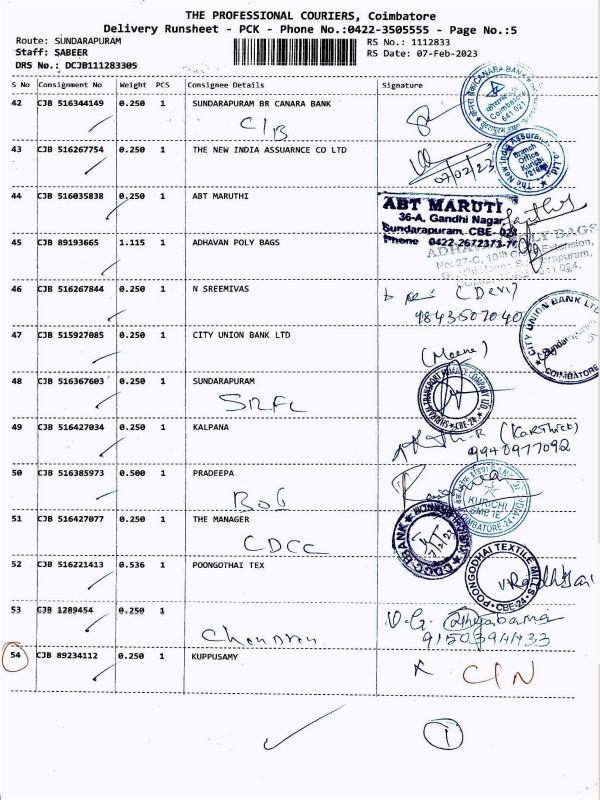 THE PROFESSIONAL COURIERS, Coimbatore
Delivery Runsheet - PCK - Phone No.:0422-3505555 - Page No.:5
Route: SUNDARAPURAM RS No.: 1112833
Staff: SABEER RS Date: 07-Feb-2023
DRS No.: DCJB111283305
S No Consignment No Weight PCS Consignee Details Signature
42 CJB 516344149 0.250 1 SUNDARAPURAM BR CANARA BANK
CANARA BANK
Coimbatore
641 021
CIB
43 CJB 516267754 0.250 1 THE NEW INDIA ASSUARNCE CO LTD
07/02/23
Branch
Office
Kurichi
44 CJB 516035838 0.250 1 ABT MARUTHI
ABT MARUTI
36-A, Gandhi Nagar,
Sundarapuram, CBE-
Phone 0422-2672373-
45 CJB 89193665 1.115 1 ADHAVAN POLY BAGS
46 CJB 516267844 0.250 1 N SREEMIVAS
(Devi)
9843507040
47 CJB 515927085 0.250 1 CITY UNION BANK LTD
CITY UNION BANK LTD
COIMBATORE
(Meena)
48 CJB 516367603 0.250 1 SUNDARAPURAM
SRFC
49 CJB 516427034 0.250 1 KALPANA
(Karthick)
9940977092
50 CJB 516385973 0.500 1 PRADEEPA
BOB
KURICHI
COIMBATORE-24
51 CJB 516427077 0.250 1 THE MANAGER
CDCC
CDCC BANK
52 CJB 516221413 0.536 1 POONGOTHAI TEX
POONGODHAI TEXTILE MILLS
CBE-24
53 CJB 1289454 0.250 1
Chandran
54 CJB 89234112 0.250 1 KUPPUSAMY
C/N
1